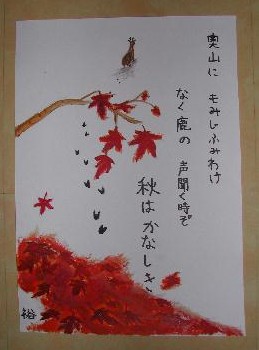 奥山に もみじふみわけ
なく鹿の 声聞く時ぞ
秋はかなしき
裕